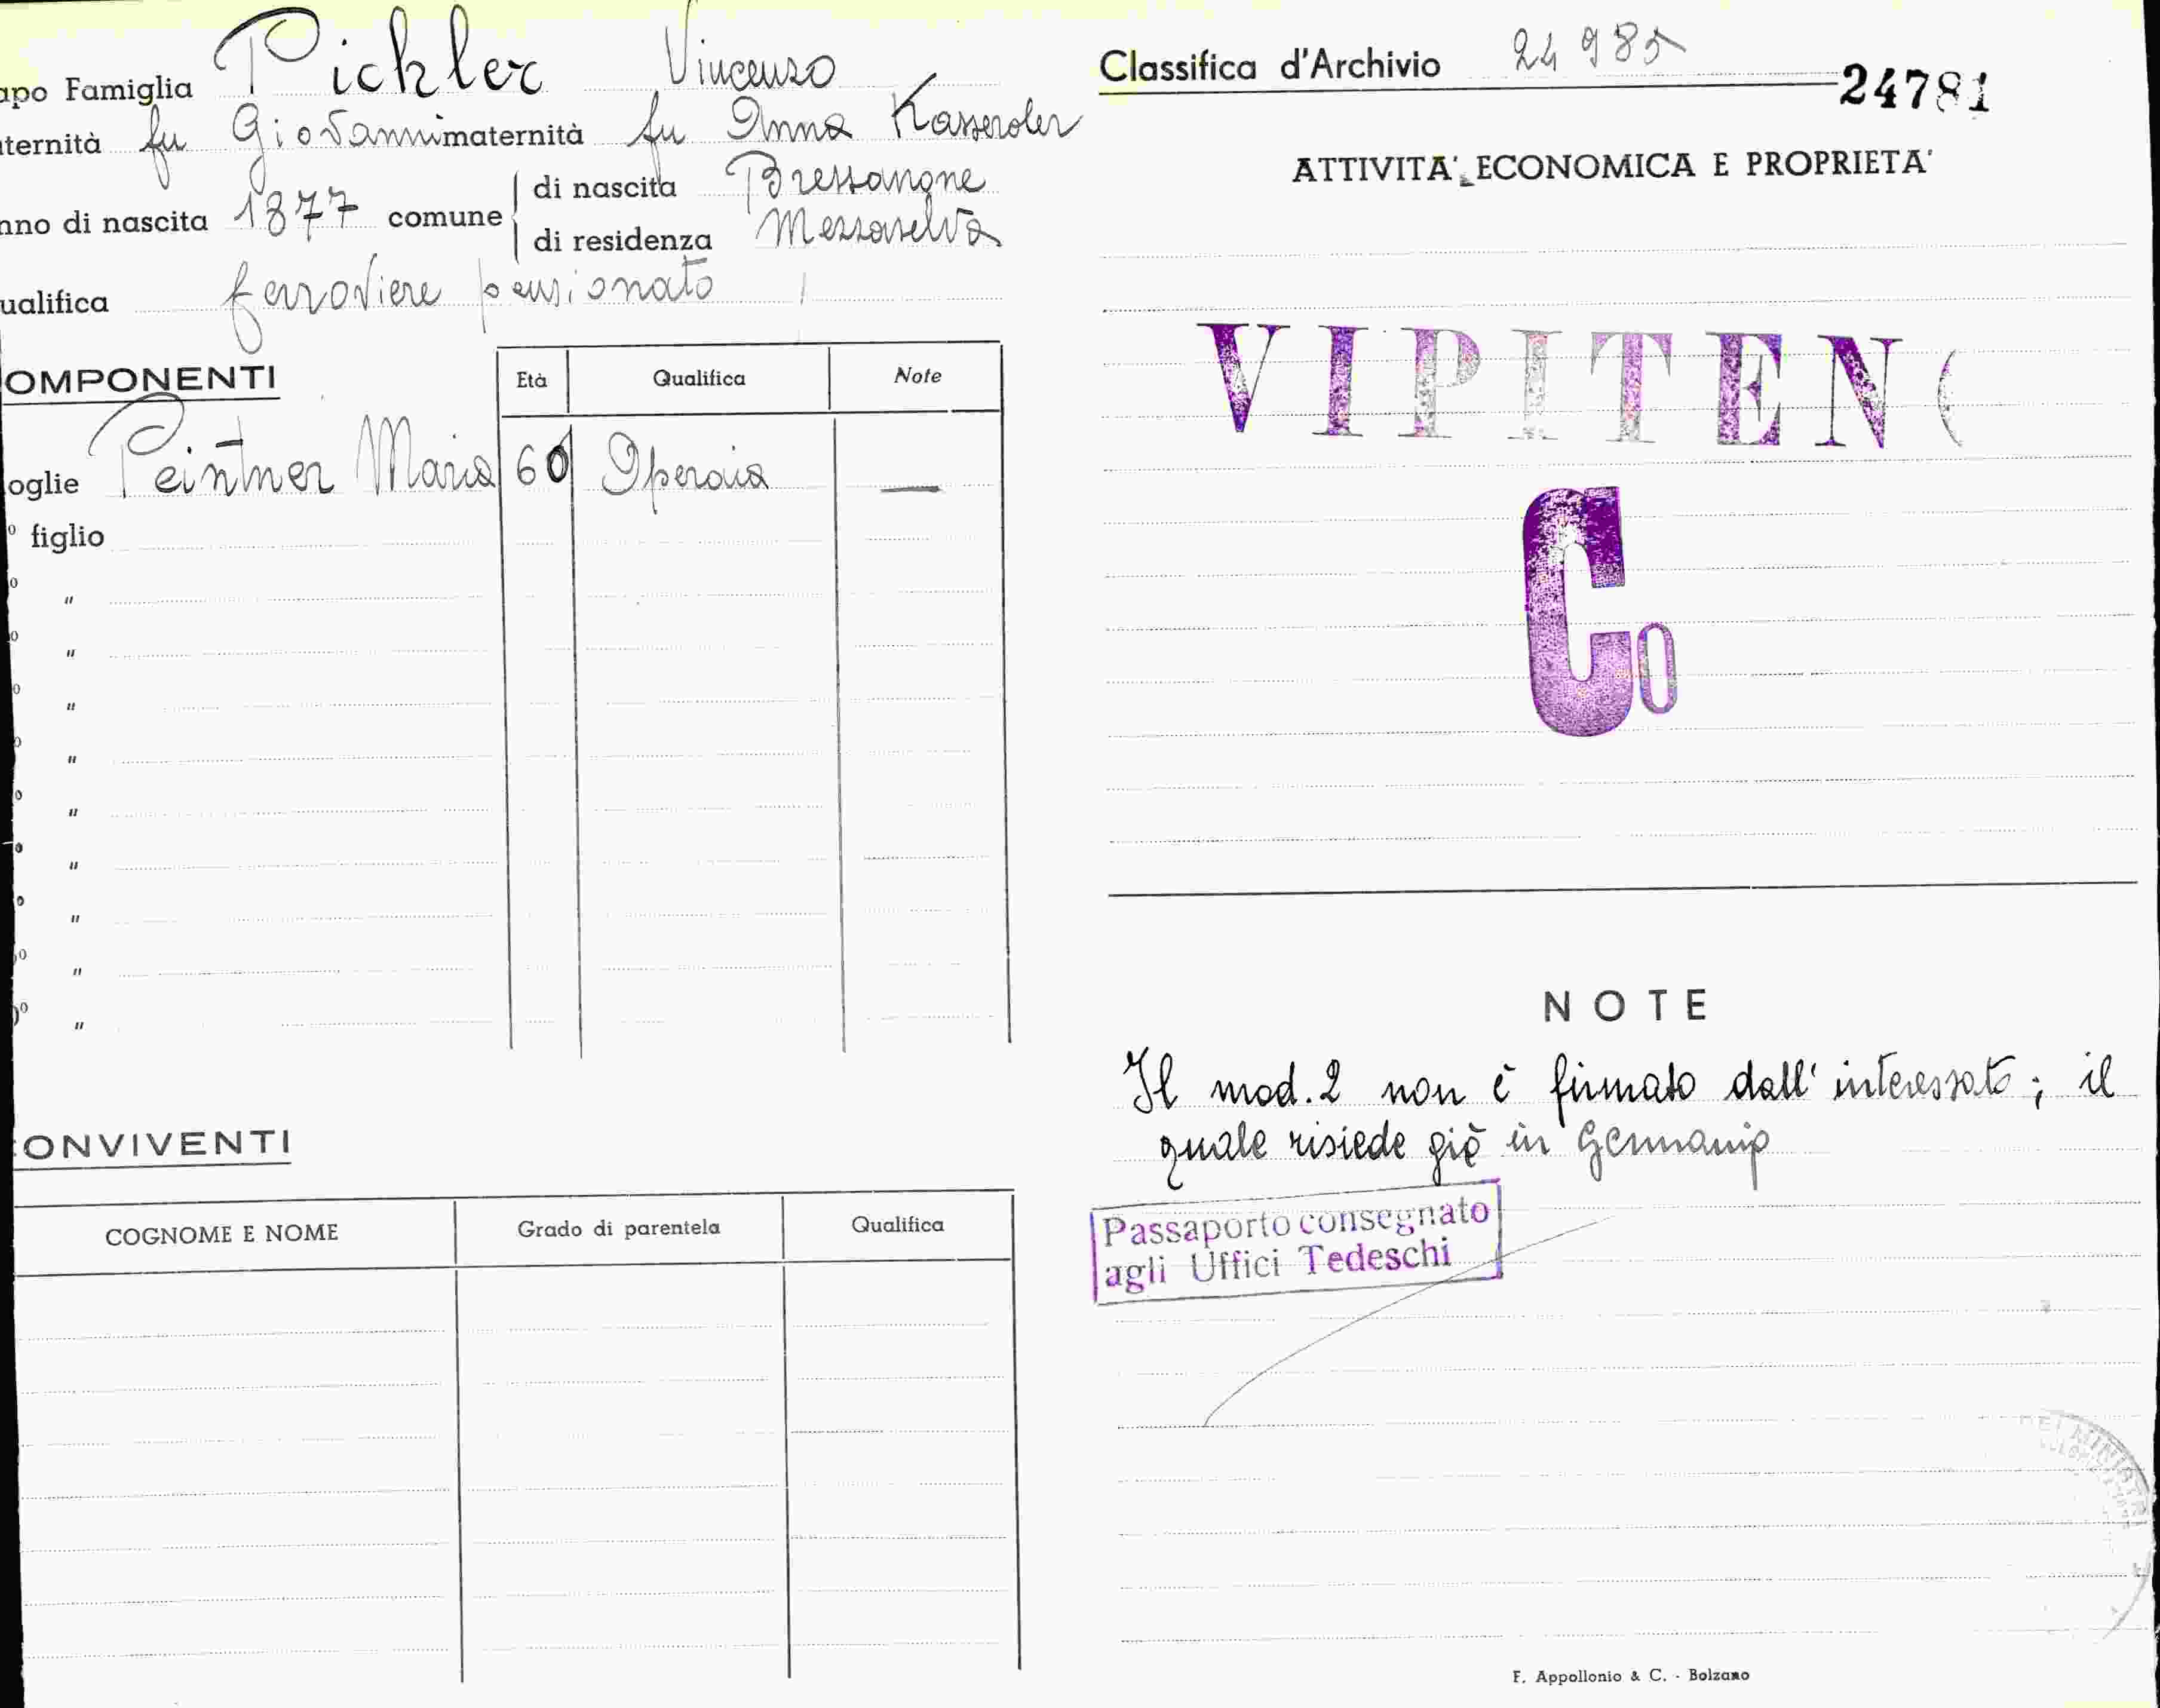 apo Famiglia Pichler Vincenzo
ternità fu Giovanni maternità fu Anna Kasseroler
nno di nascita 1877 comune di nascita Bressanone
di residenza Mezzaselva
ualifica ferroviere pensionato
OMPONENTI Età Qualifica Note
oglie Peintner Maria 60 Operaia —
º figlio
º "
º "
º "
º "
º "
º "
º "
º "
º "
ONVIVENTI
COGNOME E NOME Grado di parentela Qualifica
Classifica d'Archivio 24985
24781
ATTIVITA' ECONOMICA E PROPRIETA'
VIPITEN
Co
NOTE
Il mod. 2 non è firmato dall'interessato; il
quale risiede già in Germania
Passaporto consegnato
agli Uffici Tedeschi
F. Appollonio & C. - Bolzano